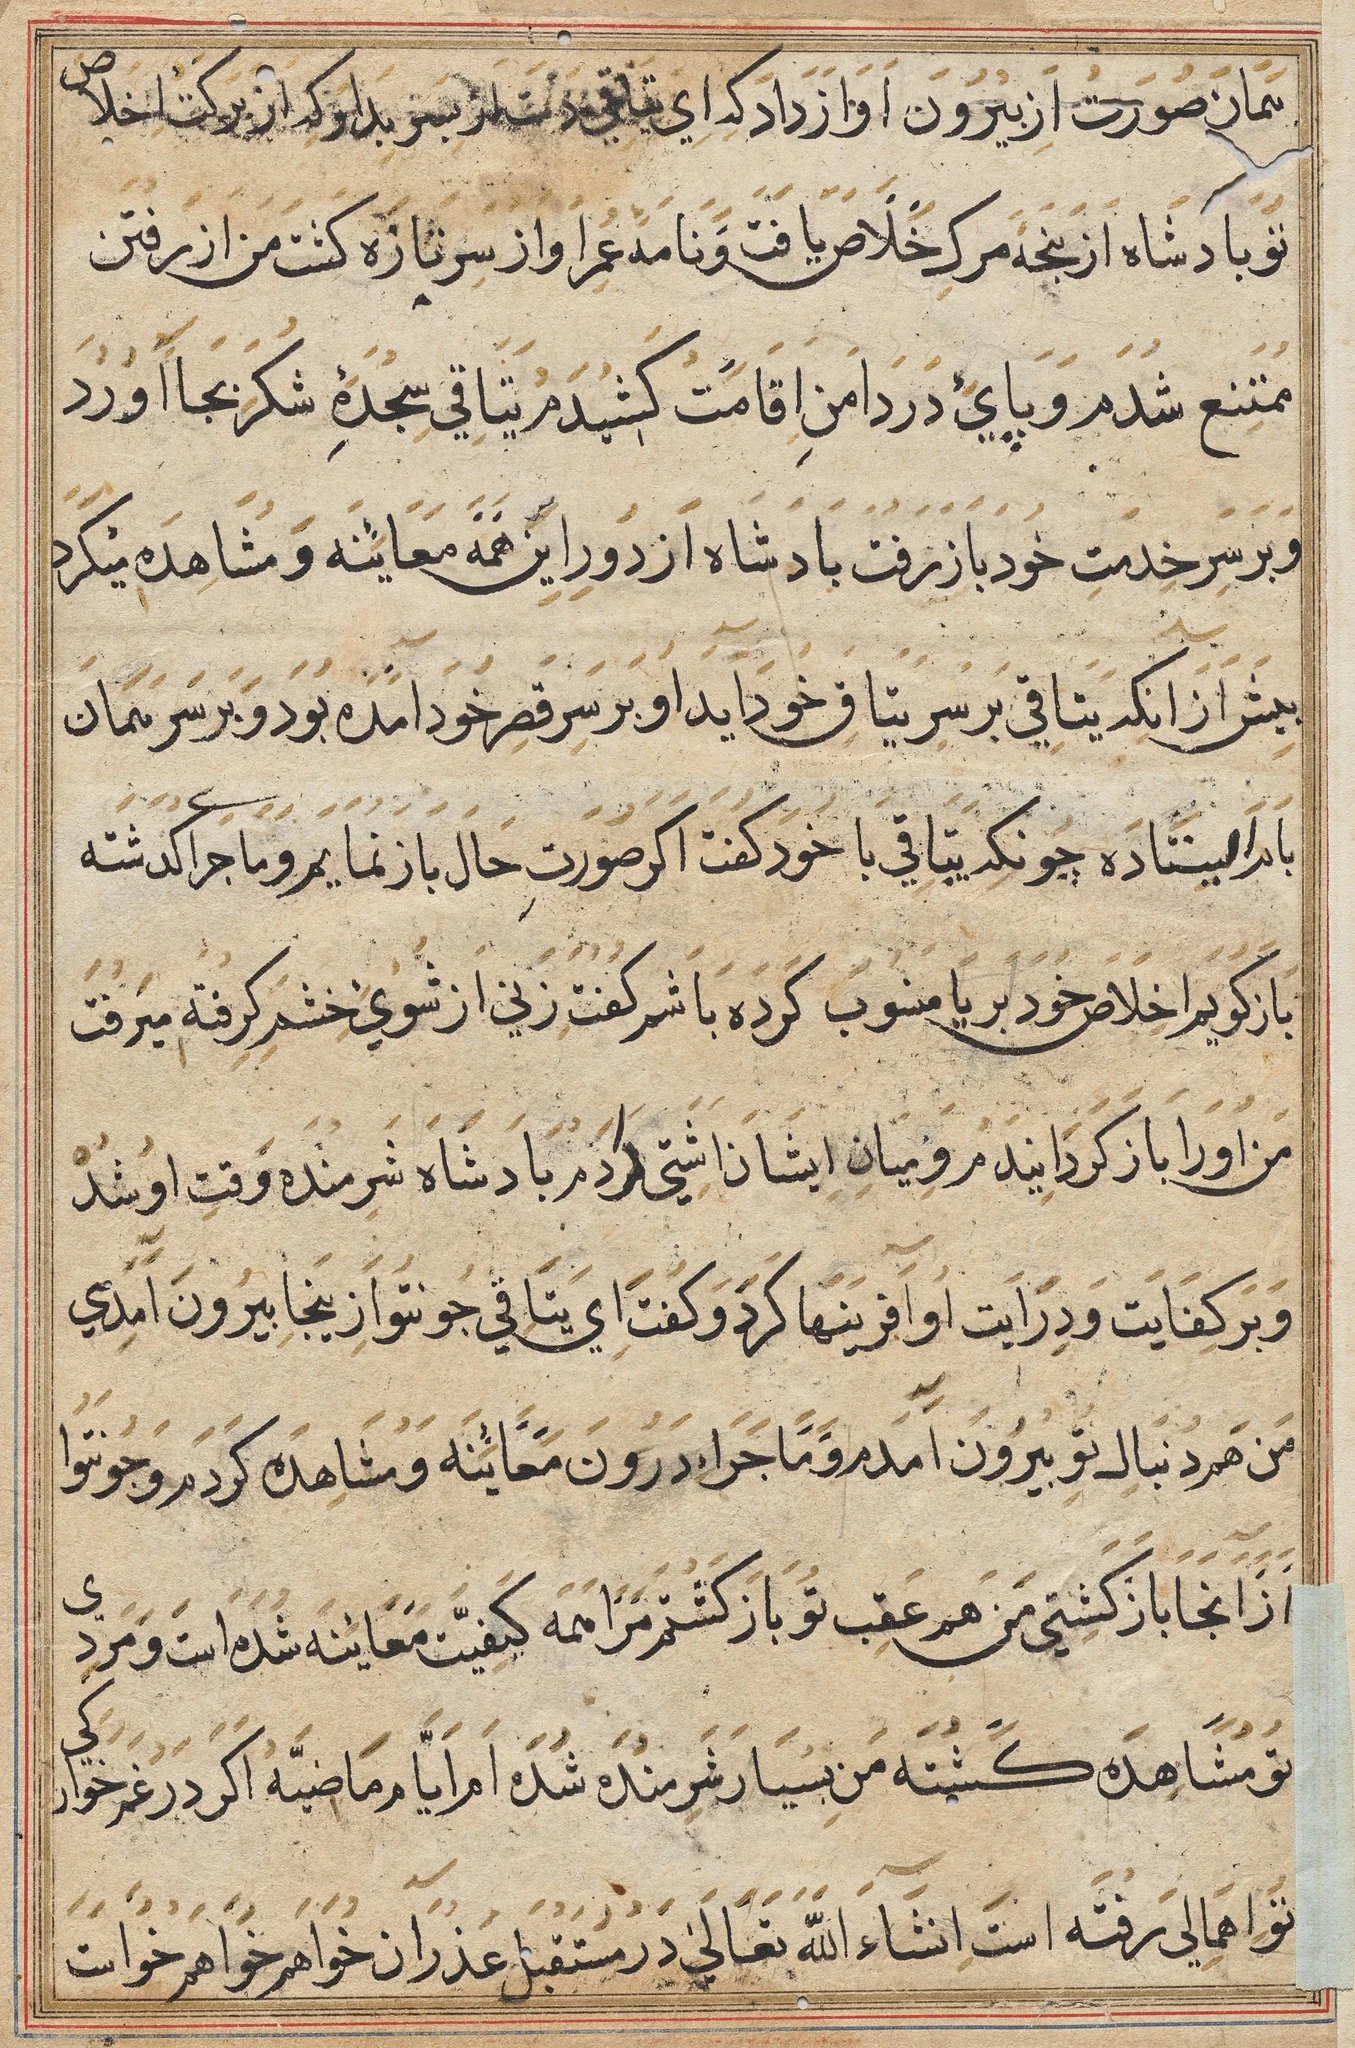 همان صورت از بیرون اواز داد که ای یتاقی دست از پسر بدار که از برکت اخلاص
تو بادشاه از پنجه مرک خلاص یافت و نامه عمر او از سر تازه کشت من از رفتن
ممتنع شدم و پای در دامن اقامت کشیدم یتاقی سجدهٔ شکر بجا اورد
و بر سر خدمت خود باز رفت بادشاه از دور این همه معاینه و مشاهده میکرد
پیش از انکه یتاقی بر سر یتاق خود آید او بر سر قصر خود آمده بود و بر سر همان
بام ایستاده چونکه یتاقی با خود کفت اکر صورت حال باز نمایم و ماجرا کذشته
باز کویم اخلاص خود بریا منسوب کرده باشم کفت زنی از شوی خشم کرفته میرفت
من او را باز کردانیدم و میان ایشان اشتی کردم بادشاه شرمنده وقت او شد
و بر کفایت و درایت او آفرینها کرد و کفت ای یتاقی چو تو از ینجا بیرون آمدی
من هم دنبال تو بیرون آمدم و ماجراء درون معاینه و مشاهده کردم و چو تو
از آنجا باز کشتی من هم عقب تو باز کشتم مرا همه کیفیت معاینه شده است و مردی
تو مشاهده کشته من بسیار شرمنده شده ام ایام ماضیه اکر در غم خوارکی
تو اهمالی رفته است انشاء الله تعالی در مستقبل عذر آن خواهم خواهم خواست